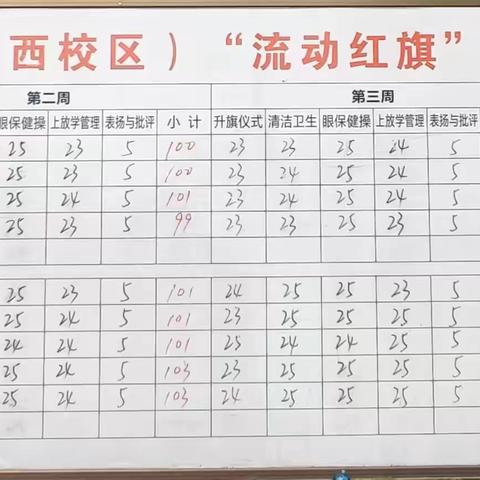 西校区）“流动红旗”
第二周 第三周
眼保健操 上放学管理 表扬与批评 小计 升旗仪式 清洁卫生 眼保健操 上放学管理 表扬与批评
25 23 5 100 23 23 25 24 5
25 23 5 100 23 24 25 24 5
25 24 5 101 23 24 25 24 5
25 23 5 99 23 23 25 23 5
25 23 5 101 24 25 25 23 5
25 24 5 101 23 25 25 24 5
24 24 5 101 25 24 24 25 5
25 24 5 103 23 25 25 25 5
25 24 5 103 24 25 25 25 5